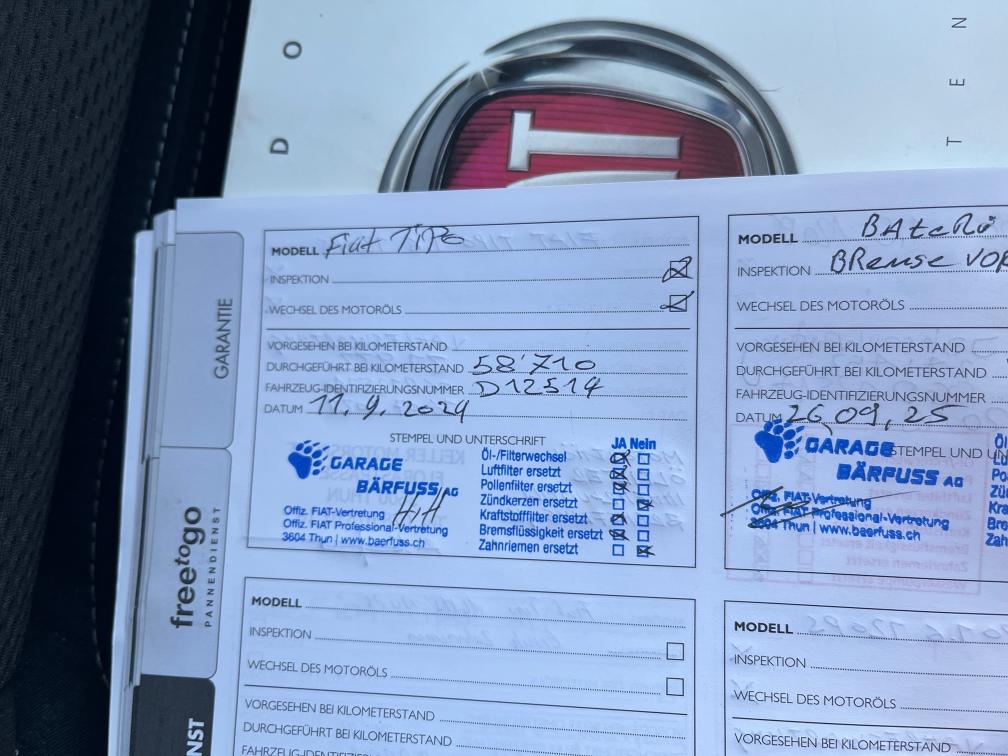 D O
T E N
MODELL Fiat TiPo
INSPEKTION
WECHSEL DES MOTORÖLS
VORGESEHEN BEI KILOMETERSTAND
DURCHGEFÜHRT BEI KILOMETERSTAND 58'710
FAHRZEUG-IDENTIFIZIERUNGSNUMMER D12514
DATUM 11.9.2024
STEMPEL UND UNTERSCHRIFT
GARAGE
BÄRFUSS AG
Offiz. FIAT-Vertretung
Offiz. FIAT Professional-Vertretung
3604 Thun | www.baerfuss.ch
JA Nein
Öl-/Filterwechsel
Luftfilter ersetzt
Pollenfilter ersetzt
Zündkerzen ersetzt
Kraftstofffilter ersetzt
Bremsflüssigkeit ersetzt
Zahnriemen ersetzt
MODELL BAteRi
INSPEKTION BRemse VOR
WECHSEL DES MOTORÖLS
VORGESEHEN BEI KILOMETERSTAND
DURCHGEFÜHRT BEI KILOMETERSTAND
FAHRZEUG-IDENTIFIZIERUNGSNUMMER
DATUM 26.09.25
STEMPEL UND UN
GARAGE
BÄRFUSS AG
Offiz. FIAT-Vertretung
Offiz. FIAT Professional-Vertretung
3604 Thun | www.baerfuss.ch
Öl
Lu
Po
Zü
Kra
Bre
Zah
MODELL
INSPEKTION
WECHSEL DES MOTORÖLS
VORGESEHEN BEI KILOMETERSTAND
DURCHGEFÜHRT BEI KILOMETERSTAND
MODELL
INSPEKTION
WECHSEL DES MOTORÖLS
VORGESEHEN BEI KILOMETERSTAND
GARANTIE
freetogo
PANNENDIENST
NST